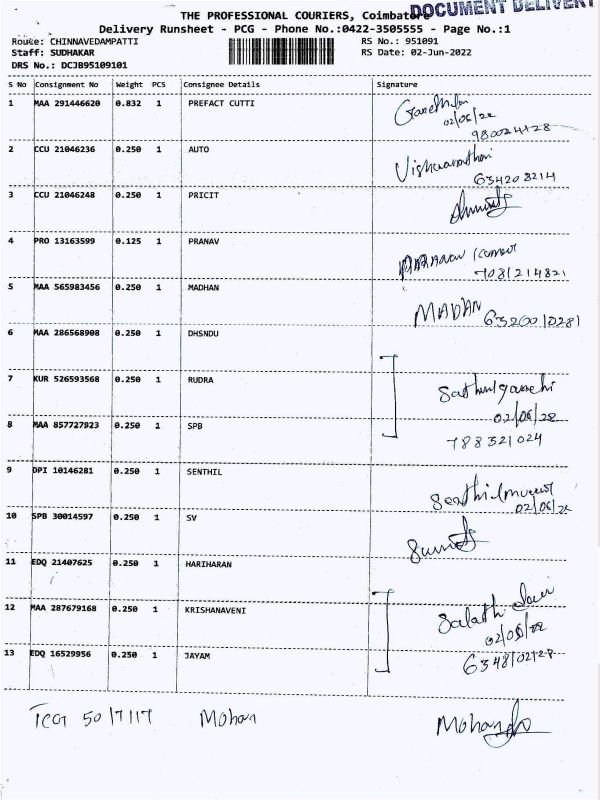 DOCUMENT DELIVERY
THE PROFESSIONAL COURIERS, Coimbatore
Delivery Runsheet - PCG - Phone No.:0422-3505555 - Page No.:1
Route: CHINNAVEDAMPATTI RS No.: 951091
Staff: SUDHAKAR RS Date: 02-Jun-2022
DRS No.: DCJB95109101
S No Consignment No Weight PCS Consignee Details Signature
1 MAA 291446620 0.832 1 PREFACT CUTTI
02/06/22
2 CCU 21046236 0.250 1 AUTO
634208214
3 CCU 21046248 0.250 1 PRICIT
4 PRO 13163599 0.125 1 PRANAV
7081214821
5 MAA 565983456 0.250 1 MADHAN MADHAN
6 MAA 286568908 0.250 1 DHSNDU
7 KUR 526593568 0.250 1 RUDRA
02/06/22
8 MAA 857727923 0.250 1 SPB
788321024
9 OPI 10146281 0.250 1 SENTHIL
02/06/22
10 SPB 30014597 0.250 1 SV
11 EDQ 21407625 0.250 1 HARIHARAN
12 MAA 287679168 0.250 1 KRISHANAVENI
02/06/22
13 EDQ 16529956 0.250 1 JAYAM
Mohan Mohan